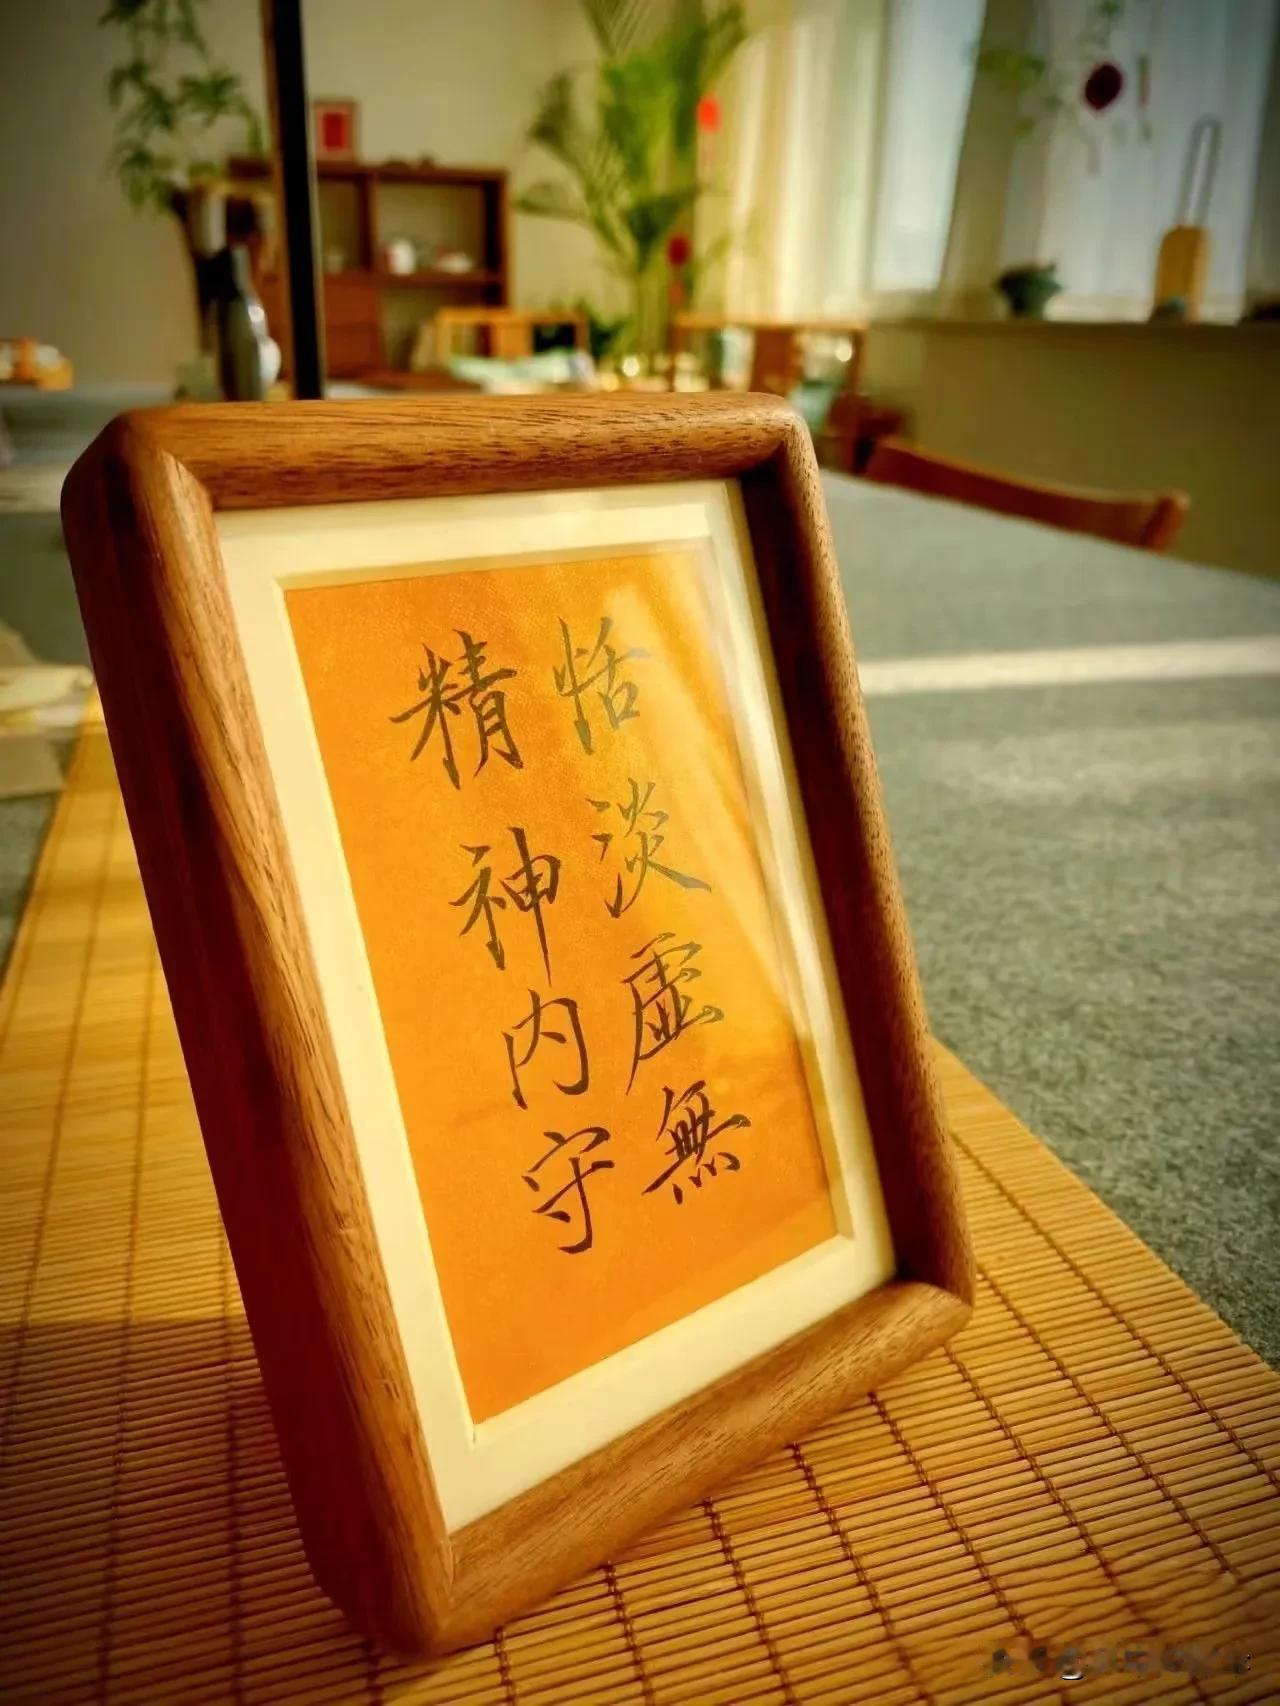 恬淡虛無
精神内守